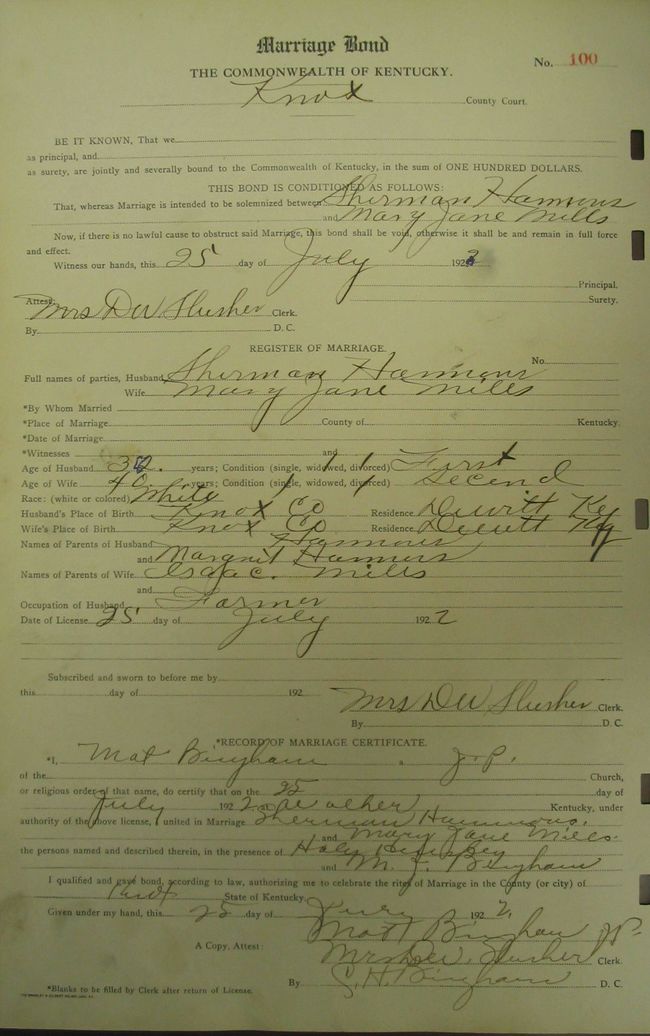 Marriage Bond
No. 100
THE COMMONWEALTH OF KENTUCKY.
Knox County Court.
BE IT KNOWN, That we
as principal, and
as surety, are jointly and severally bound to the Commonwealth of Kentucky, in the sum of ONE HUNDRED DOLLARS.
THIS BOND IS CONDITIONED AS FOLLOWS:
That, whereas Marriage is intended to be solemnized between Sherman Hammons
and Mary Jane Mills
Now, if there is no lawful cause to obstruct said Marriage, this bond shall be void, otherwise it shall be and remain in full force
and effect.
Witness our hands, this 25 day of July 1922
Principal,
Surety.
Attest: Mrs D W Slusher Clerk.
By D. C.
REGISTER OF MARRIAGE.
No.
Full names of parties, Husband Sherman Hammons
Wife Mary Jane Mills
*By Whom Married
*Place of Marriage County of Kentucky.
*Date of Marriage
*Witnesses and
Age of Husband 32. years; Condition (single, widowed, divorced) First
Age of Wife 40 years; Condition (single, widowed, divorced) Second
Race: (white or colored) White
Husband's Place of Birth Knox Co Residence Dewitt Ky
Wife's Place of Birth Knox Co Residence Dewitt Ky
Names of Parents of Husband Hammons
and Margrit Hammons
Names of Parents of Wife Isaac. Mills
and
Occupation of Husband Farmer
Date of License 25 day of July 1922
Subscribed and sworn to before me by
this day of 192
Mrs D W Slusher Clerk.
By D. C.
*RECORD OF MARRIAGE CERTIFICATE.
*I, Mat Bingham J. P.
of the Church,
or religious order of that name, do certify that on the 25 day of
July 1922 at Kentucky, under
authority of the above license, united in Marriage Sherman Hammons.
and Mary Jane Mills.
the persons named and described therein, in the presence of
and M. J. Bingham
I qualified and gave bond, according to law, authorizing me to celebrate the rites of Marriage in the County (or city) of
Knox State of Kentucky.
Given under my hand, this 25 day of July 1922.
Mat Bingham J P.
A Copy, Attest: Mrs D W Slusher Clerk.
By S. H. Bingham D. C.
*Blanks to be filled by Clerk after return of License.